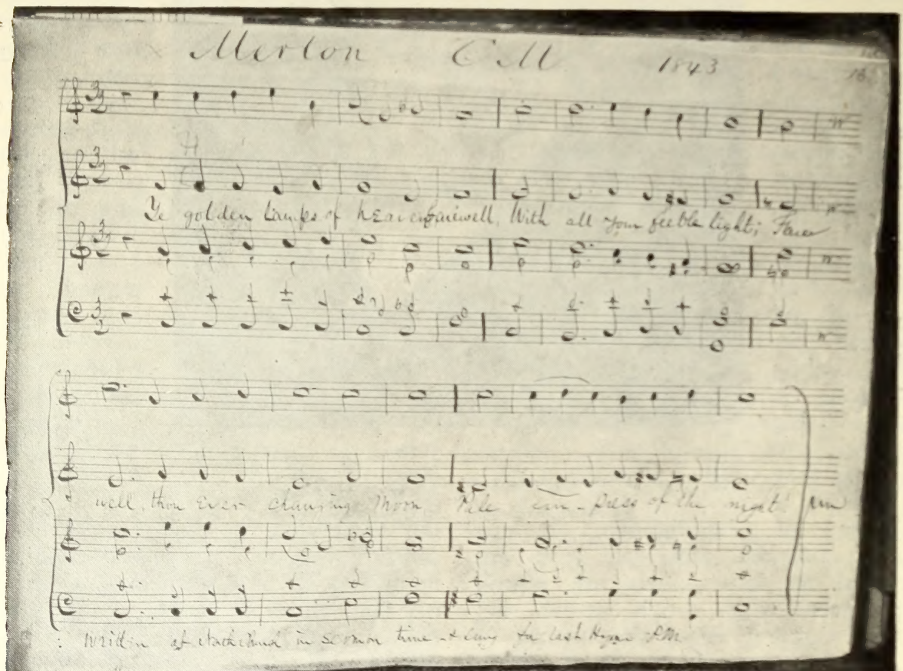 Merton C M 1843
Ye golden Lamps of heaven farewell, With all your feeble light; Fare
well, thou ever changing Moon Pale em-press of the night!
Written at in Sermon time & Sung for last Hymn P.M